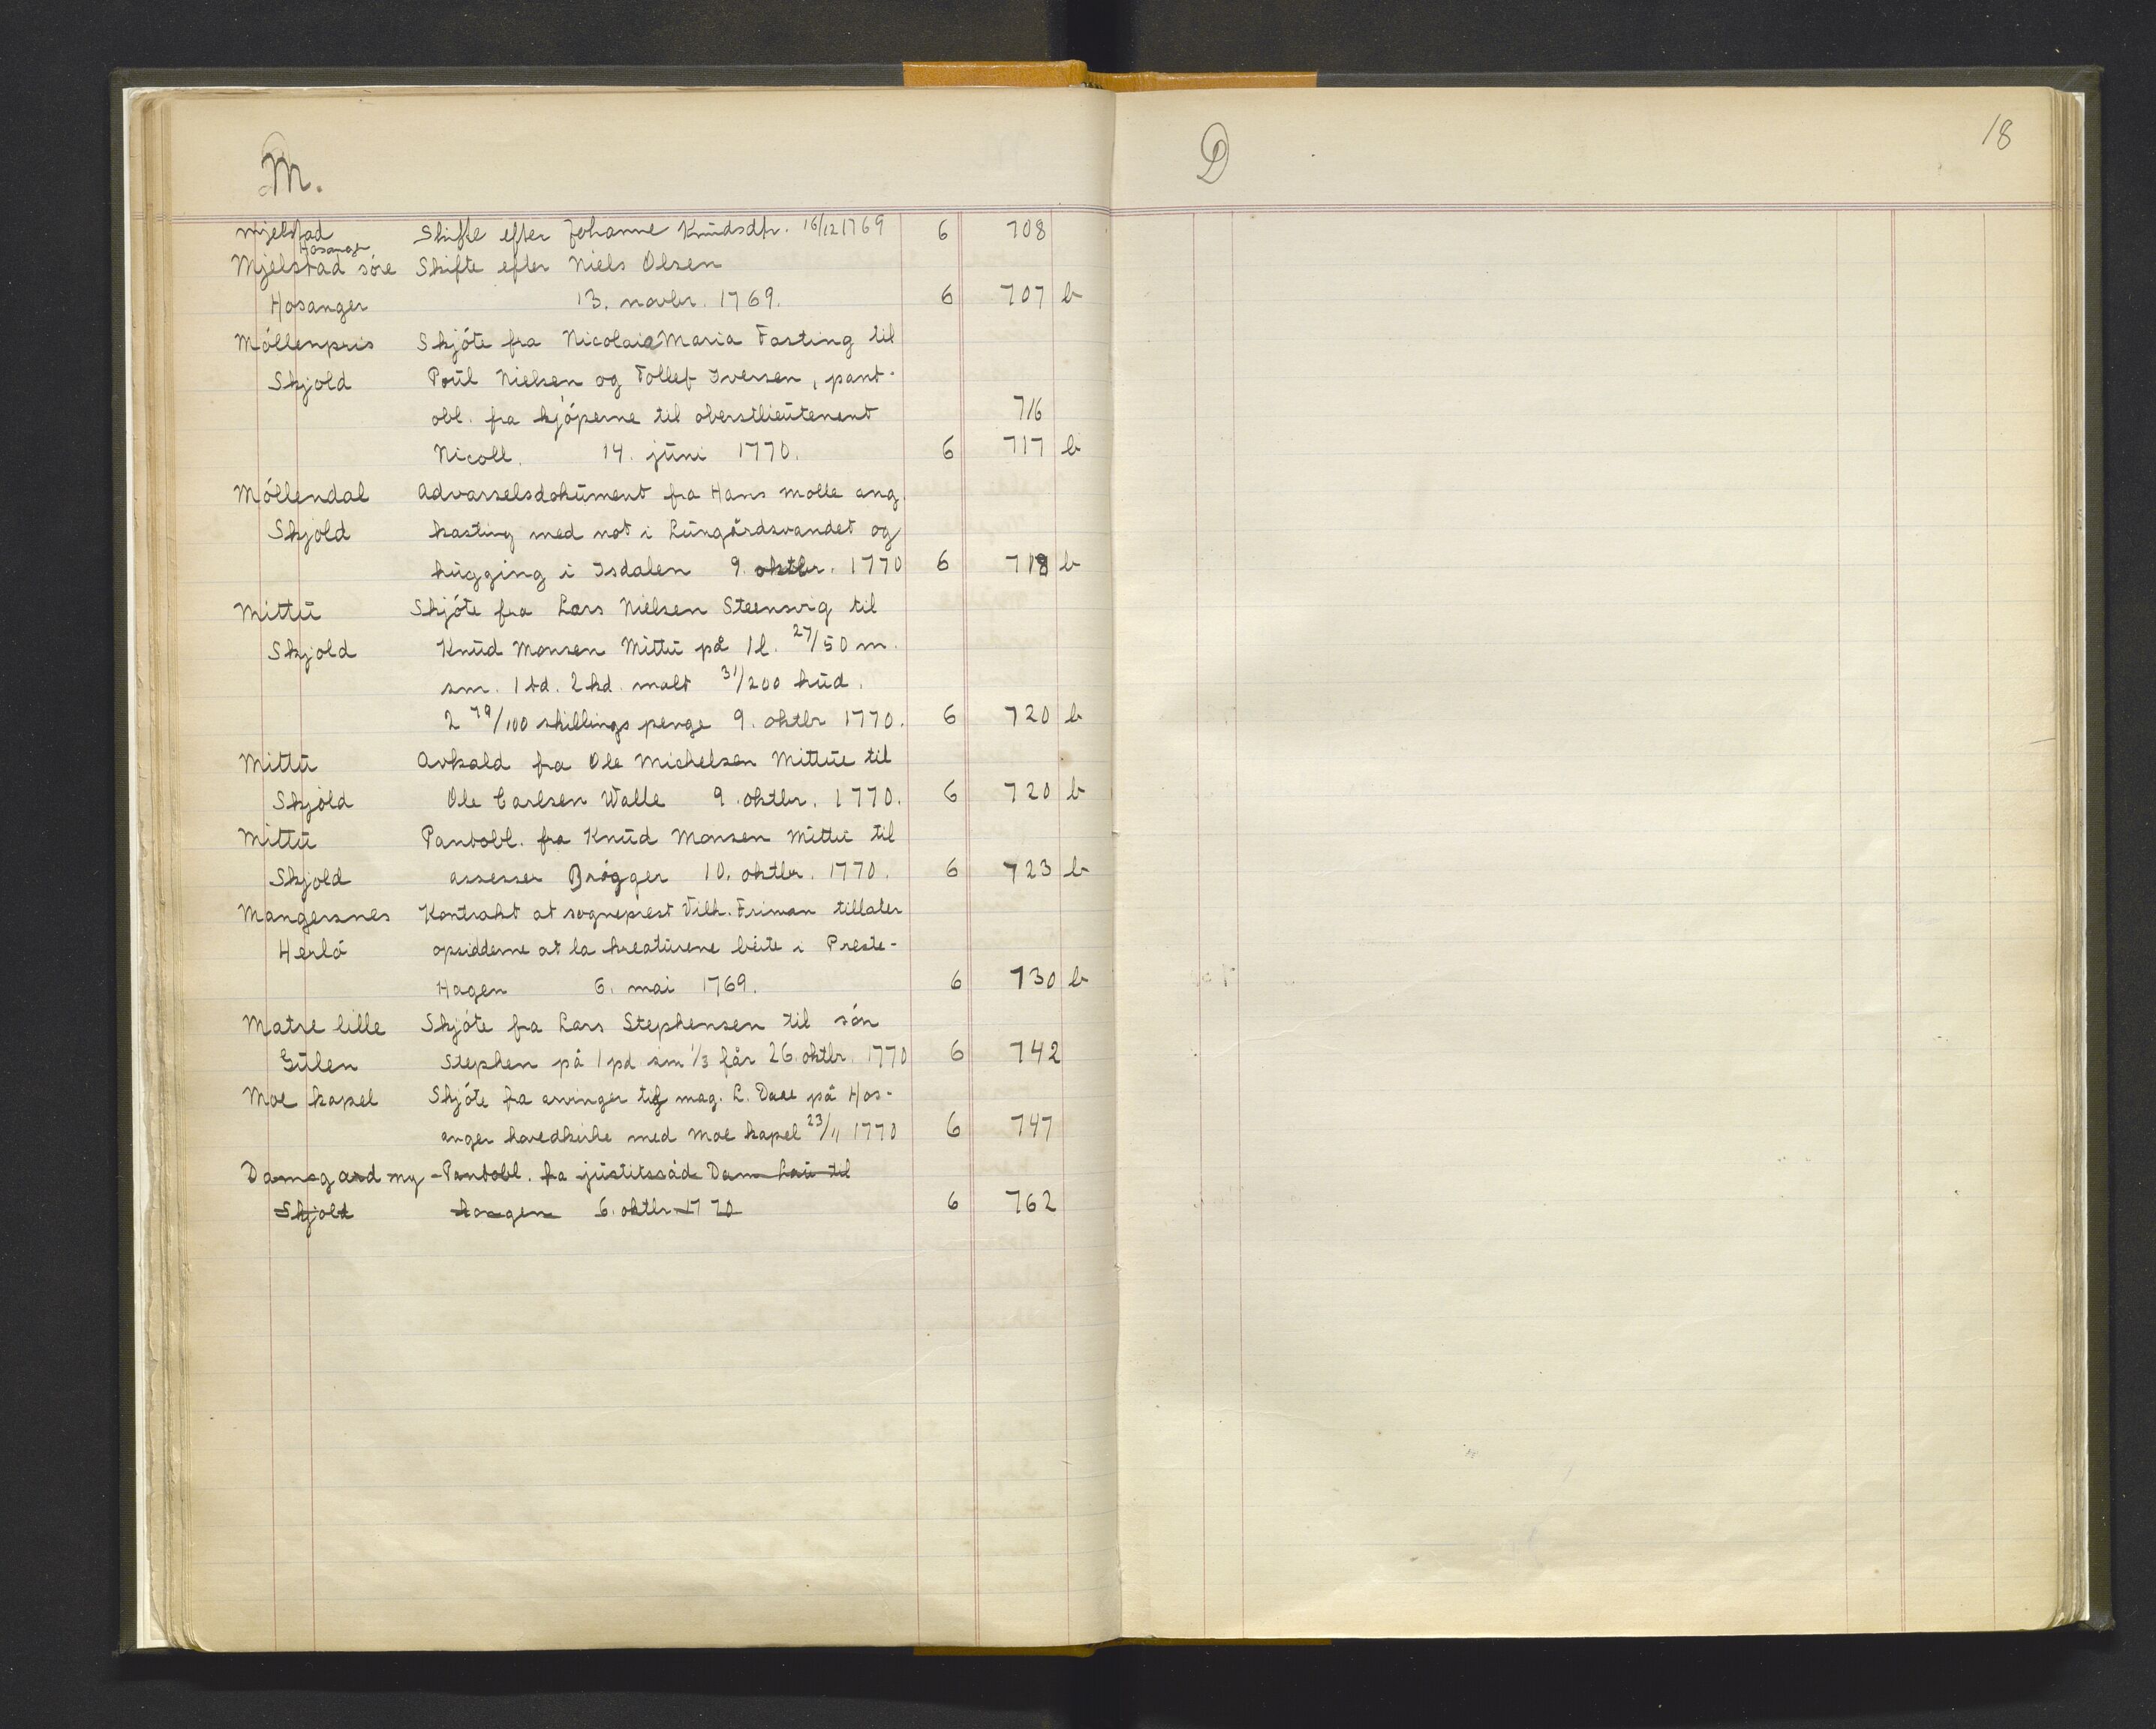 M.
Mjelstad Skifte efter Johanne Knüdsdtr. 16/12 1769 6 708
Hosanger
Mjelstad söre Skifte efter Niels Olsen
Hosanger 13. novbr. 1769. 6 707 b
Möllenpris Skjöte fra Nicolaia Maria Fasting til
Skjold Poül Nielsen og Tollef Iversen, pant-
obl. fra kjöperne til oberstlieütenent 716
Nicoll. 14. jüni 1770. 6 717 b
Möllendal Advarselsdoküment fra Hans Molle ang.
Skjold kasting med not i Lüngårdsvandet og
hügging i Isdalen 9. oktbr. 1770 6 718 b
Mittü Skjöte fra Lars Nielsen Steensvig til
Skjold Knüd Monsen Mittü på 1 l. 27/50 m.
sm. 1 td. 2 kd. malt 31/200 hüd.
2 79/100 skillings penge 9. oktbr 1770. 6 720 b
Mittü Avkald fra Ole Michelsen Mittüe til
Skjold Ole Carlsen Walle 9. oktbr. 1770. 6 720 b
Mittü Pantobl. fra Knüd Monsen Mittü til
Skjold assesser Brögger 10. oktbr. 1770. 6 723 b
Mangersnes Kontrakt at sogneprest Vilh. Friman tillater
Herlö opsidderne at la kreatürene beite i Preste-
Hagen 6. mai 1769. 6 730 b
Matre lille Skjöte fra Lars Stephensen til sön
Gülen Stephen på 1 pd sm 1/3 får 26. oktbr. 1770 6 742
Moe kapel Skjöte fra arvinger til mag. L. Daae på Hos-
anger hovedkirke med Moe kapel 23/11 1770 6 747
Damsgard my - Pantobl. fra jüstitsråd Dam haü til
Skjold 6. oktbr 1770 6 762
D
18